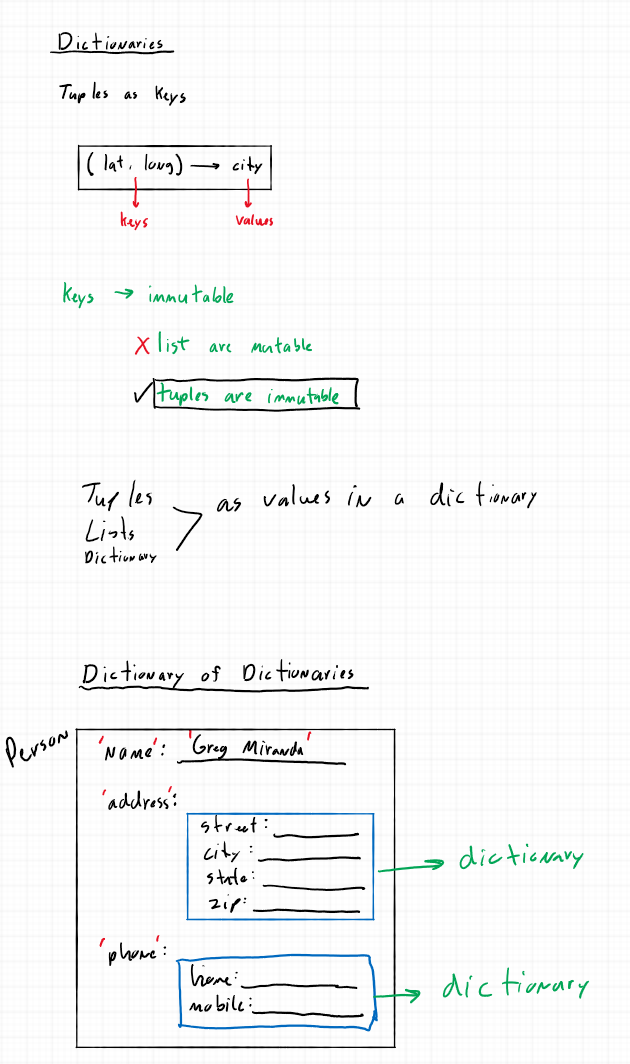 Dictionaries
Tuples as Keys
(lat, long) → city
keys values
Keys → immutable
X list are mutable
✓ tuples are immutable
Tuples
Lists
Dictionary
> as values in a dictionary
Dictionary of Dictionaries
Person
'Name': 'Greg Miranda'
'address':
street:
city:
state:
zip:
→ dictionary
'phone':
home:
mobile:
→ dictionary